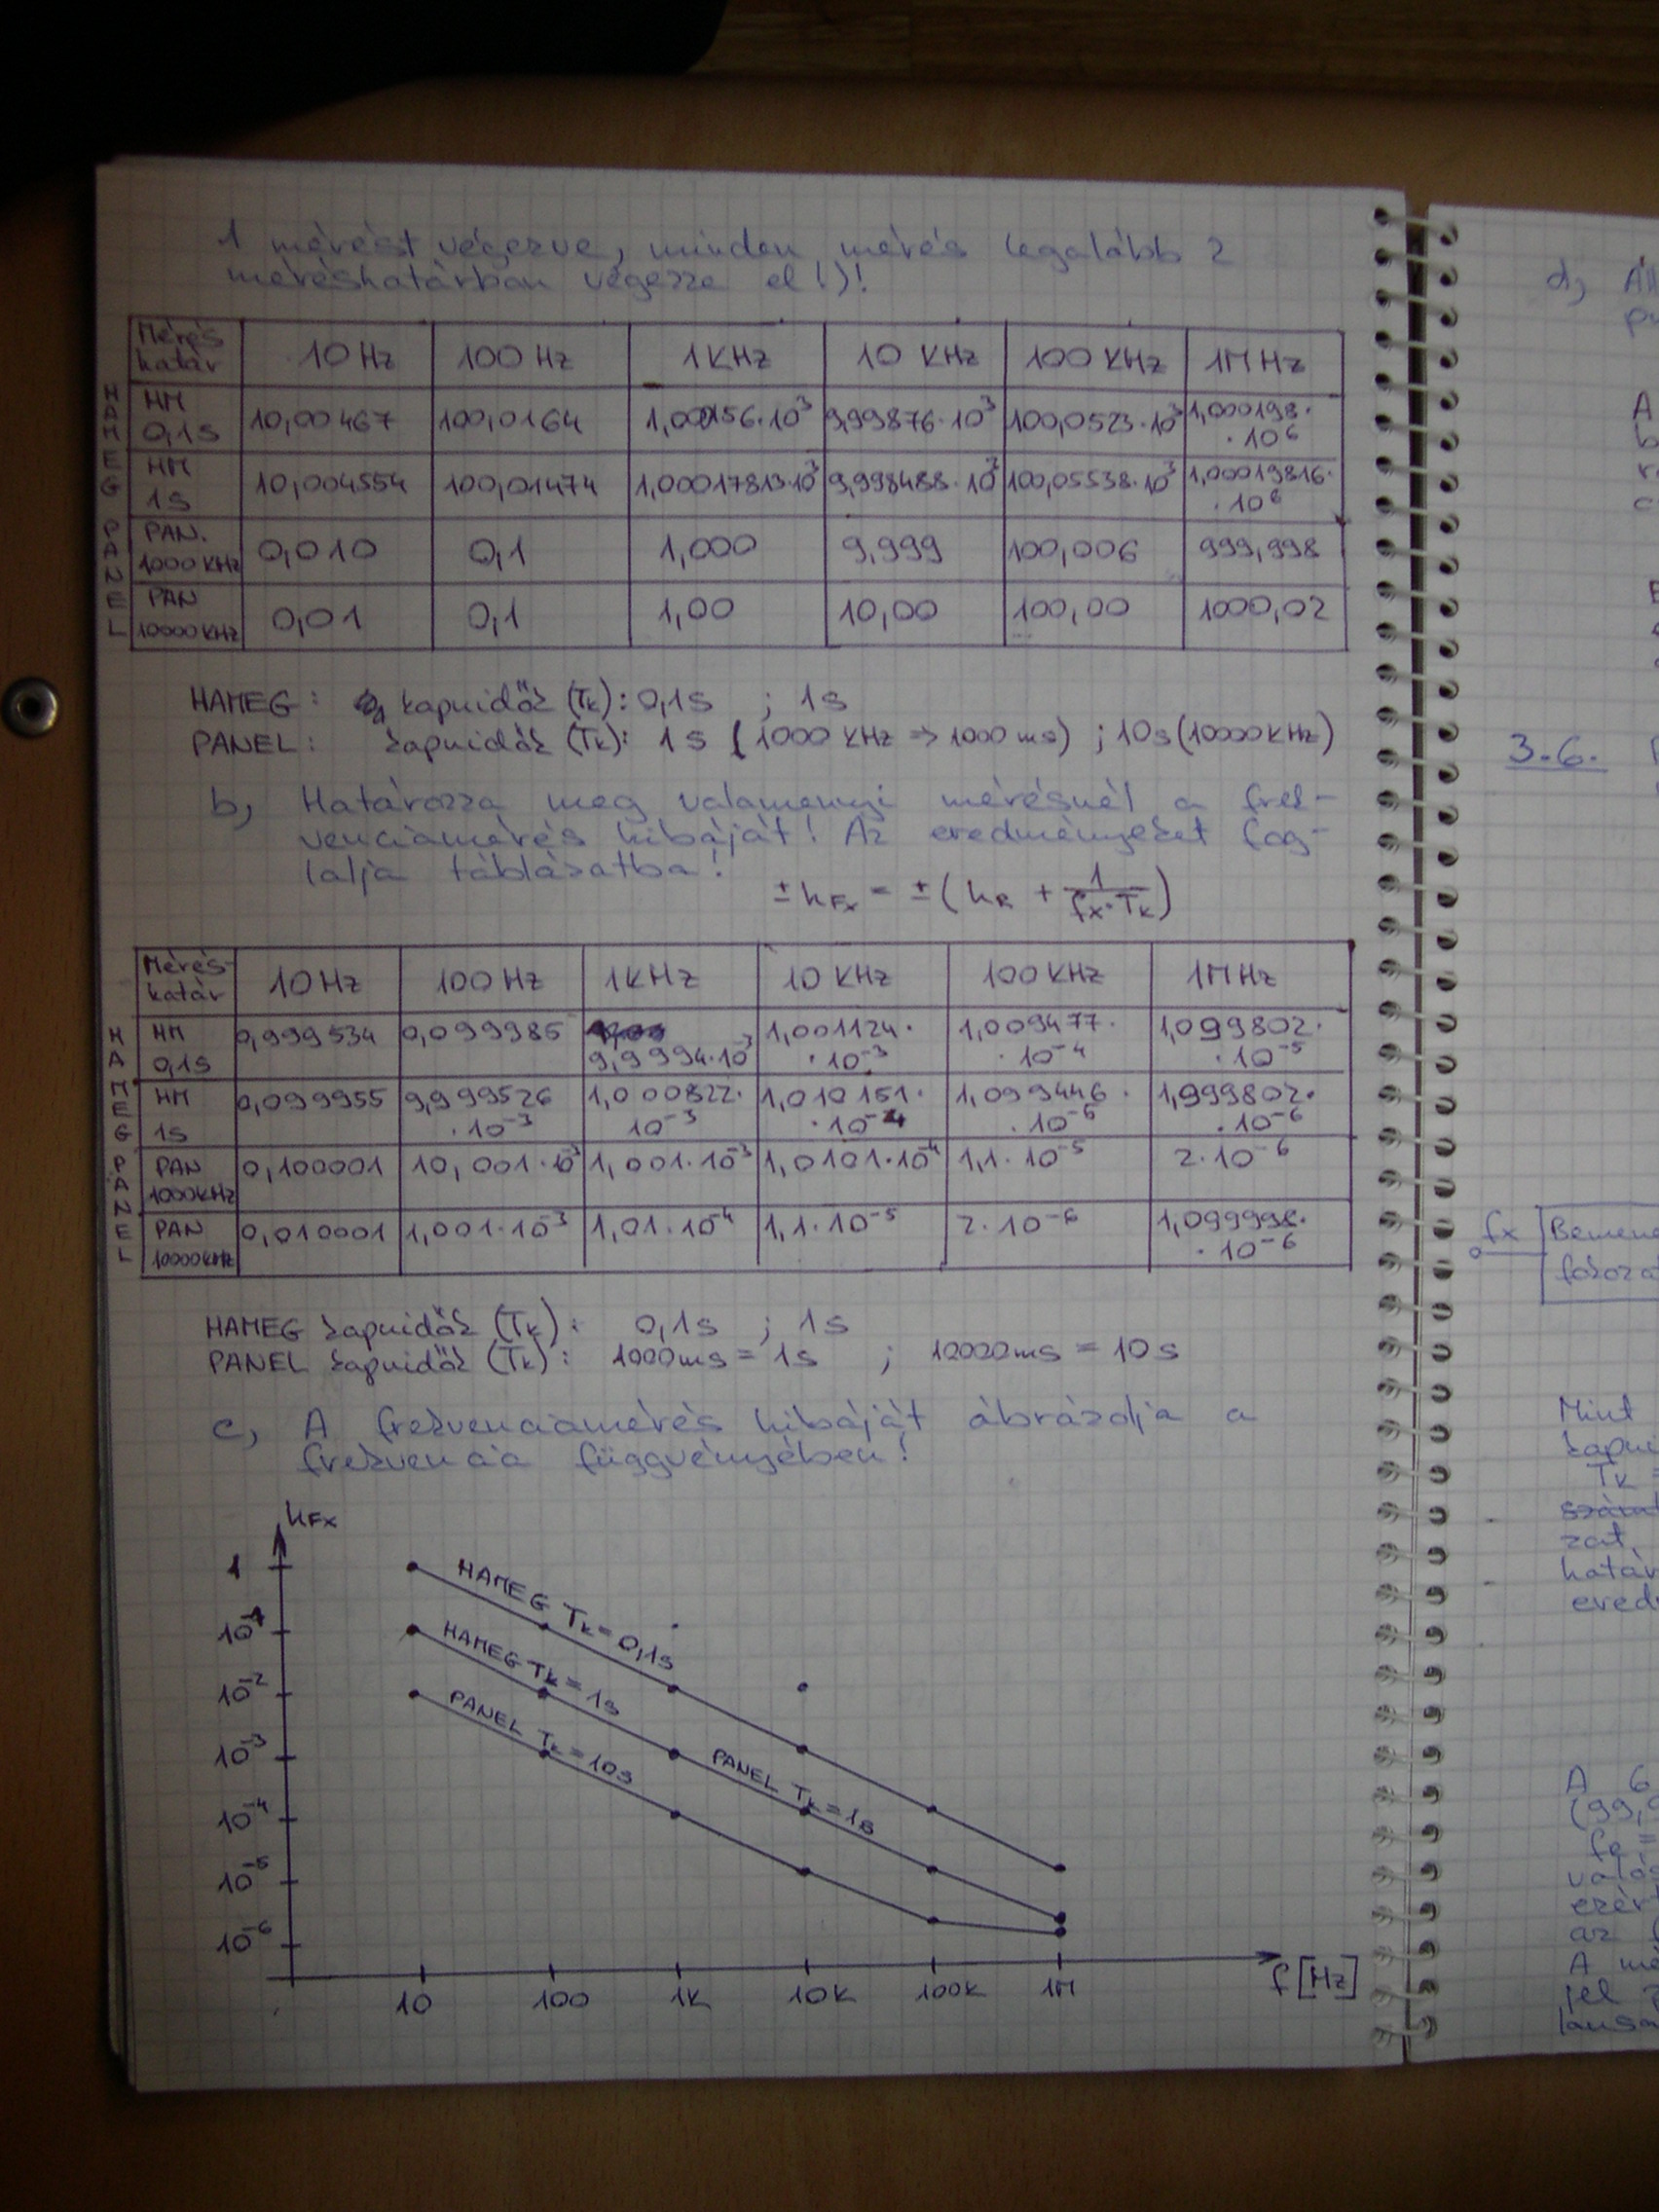 1 mérést végezve, minden mérés legalább 2
méréshatárban végezze el!)!
Mérés határ 10 Hz 100 Hz 1 KHz 10 KHz 100 KHz 1M Hz
HAMEG
HM 0,1s 10,00467 100,0164 1,00156·10³ 9,99876·10³ 100,0523·10³ 1,000198·10⁶
HM 1s 10,004554 100,01474 1,00017813·10³ 9,998488·10³ 100,05538·10³ 1,00019816·10⁶
PANEL
PAN. 1000 KHz 0,010 0,1 1,000 9,999 100,006 999,998
PAN 10000 KHz 0,01 0,1 1,00 10,00 100,00 1000,02
HAMEG: kapuidők (Tk): 0,1s ; 1s
PANEL: kapuidők (Tk): 1s (1000 KHz => 1000 ms) ; 10s (10000 KHz)
b, Határozza meg valamennyi mérésnél a frek-
venciamérés hibáját! Az eredményeket fog-
lalja táblázatba!
±hFx = ±(hR + 1/(fx·Tk))
Mérés- határ 10 Hz 100 Hz 1KHz 10 KHz 100 KHz 1M Hz
HAMEG
HM 0,1s 0,999534 0,099985 9,9994·10⁻³ 1,001124·10⁻³ 1,009477·10⁻⁴ 1,099802·10⁻⁵
HM 1s 0,099955 9,999526·10⁻³ 1,000822·10⁻³ 1,010151·10⁻⁴ 1,099446·10⁻⁵ 1,999802·10⁻⁶
PANEL
PAN 1000KHz 0,100001 10,001·10⁻³ 1,001·10⁻³ 1,0101·10⁻⁴ 1,1·10⁻⁵ 2·10⁻⁶
PAN 10000KHz 0,010001 1,001·10⁻³ 1,01·10⁻⁴ 1,1·10⁻⁵ 2·10⁻⁶ 1,099998·10⁻⁶
HAMEG kapuidők (Tk): 0,1s ; 1s
PANEL kapuidők (Tk): 1000ms = 1s ; 10000ms = 10s
c, A frekvenciamérés hibáját ábrázolja a
frekvencia függvényében!
hFx
1
10⁻¹
10⁻²
10⁻³
10⁻⁴
10⁻⁵
10⁻⁶
HAMEG Tk=0,1s
HAMEG Tk=1s
PANEL Tk=10s
PANEL Tk=1s
10 100 1K 10K 100K 1M f[Hz]
d,
A
3.6.
fx
Mint
Tk =
zat,
határ
A 6
(99,9
A
jel